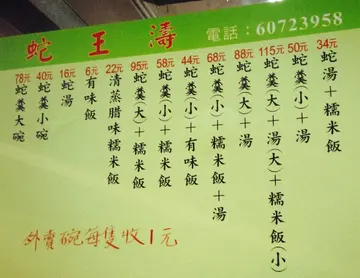 蛇王濤
電話：60723958
78元 蛇羹大碗
40元 蛇羹小碗
16元 蛇湯
6元 有味飯
22元 清蒸腊味糯米飯
95元 蛇羹(大)+糯米飯
58元 蛇羹(小)+糯米飯
44元 蛇羹(小)+有味飯
68元 蛇羹(小)+糯米飯+湯
88元 蛇羹(大)+湯
115元 蛇羹(大)+湯(大)+糯米飯(小)
50元 蛇羹(小)+湯
34元 蛇湯+糯米飯
外賣碗每隻收1元